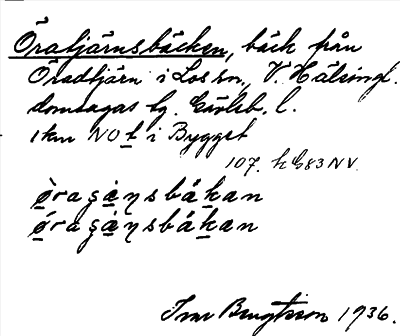 Öratjärnsbäcken, bäck från
Öradtjärn i Los sn, V. Hälsingl.
domsagas tg. Gävleb. l.
1 km NO t i Bygget
107. h G83 NV.
òragàṇsbákan
óragàṇsbákan
Ivar Bengtsson 1936.